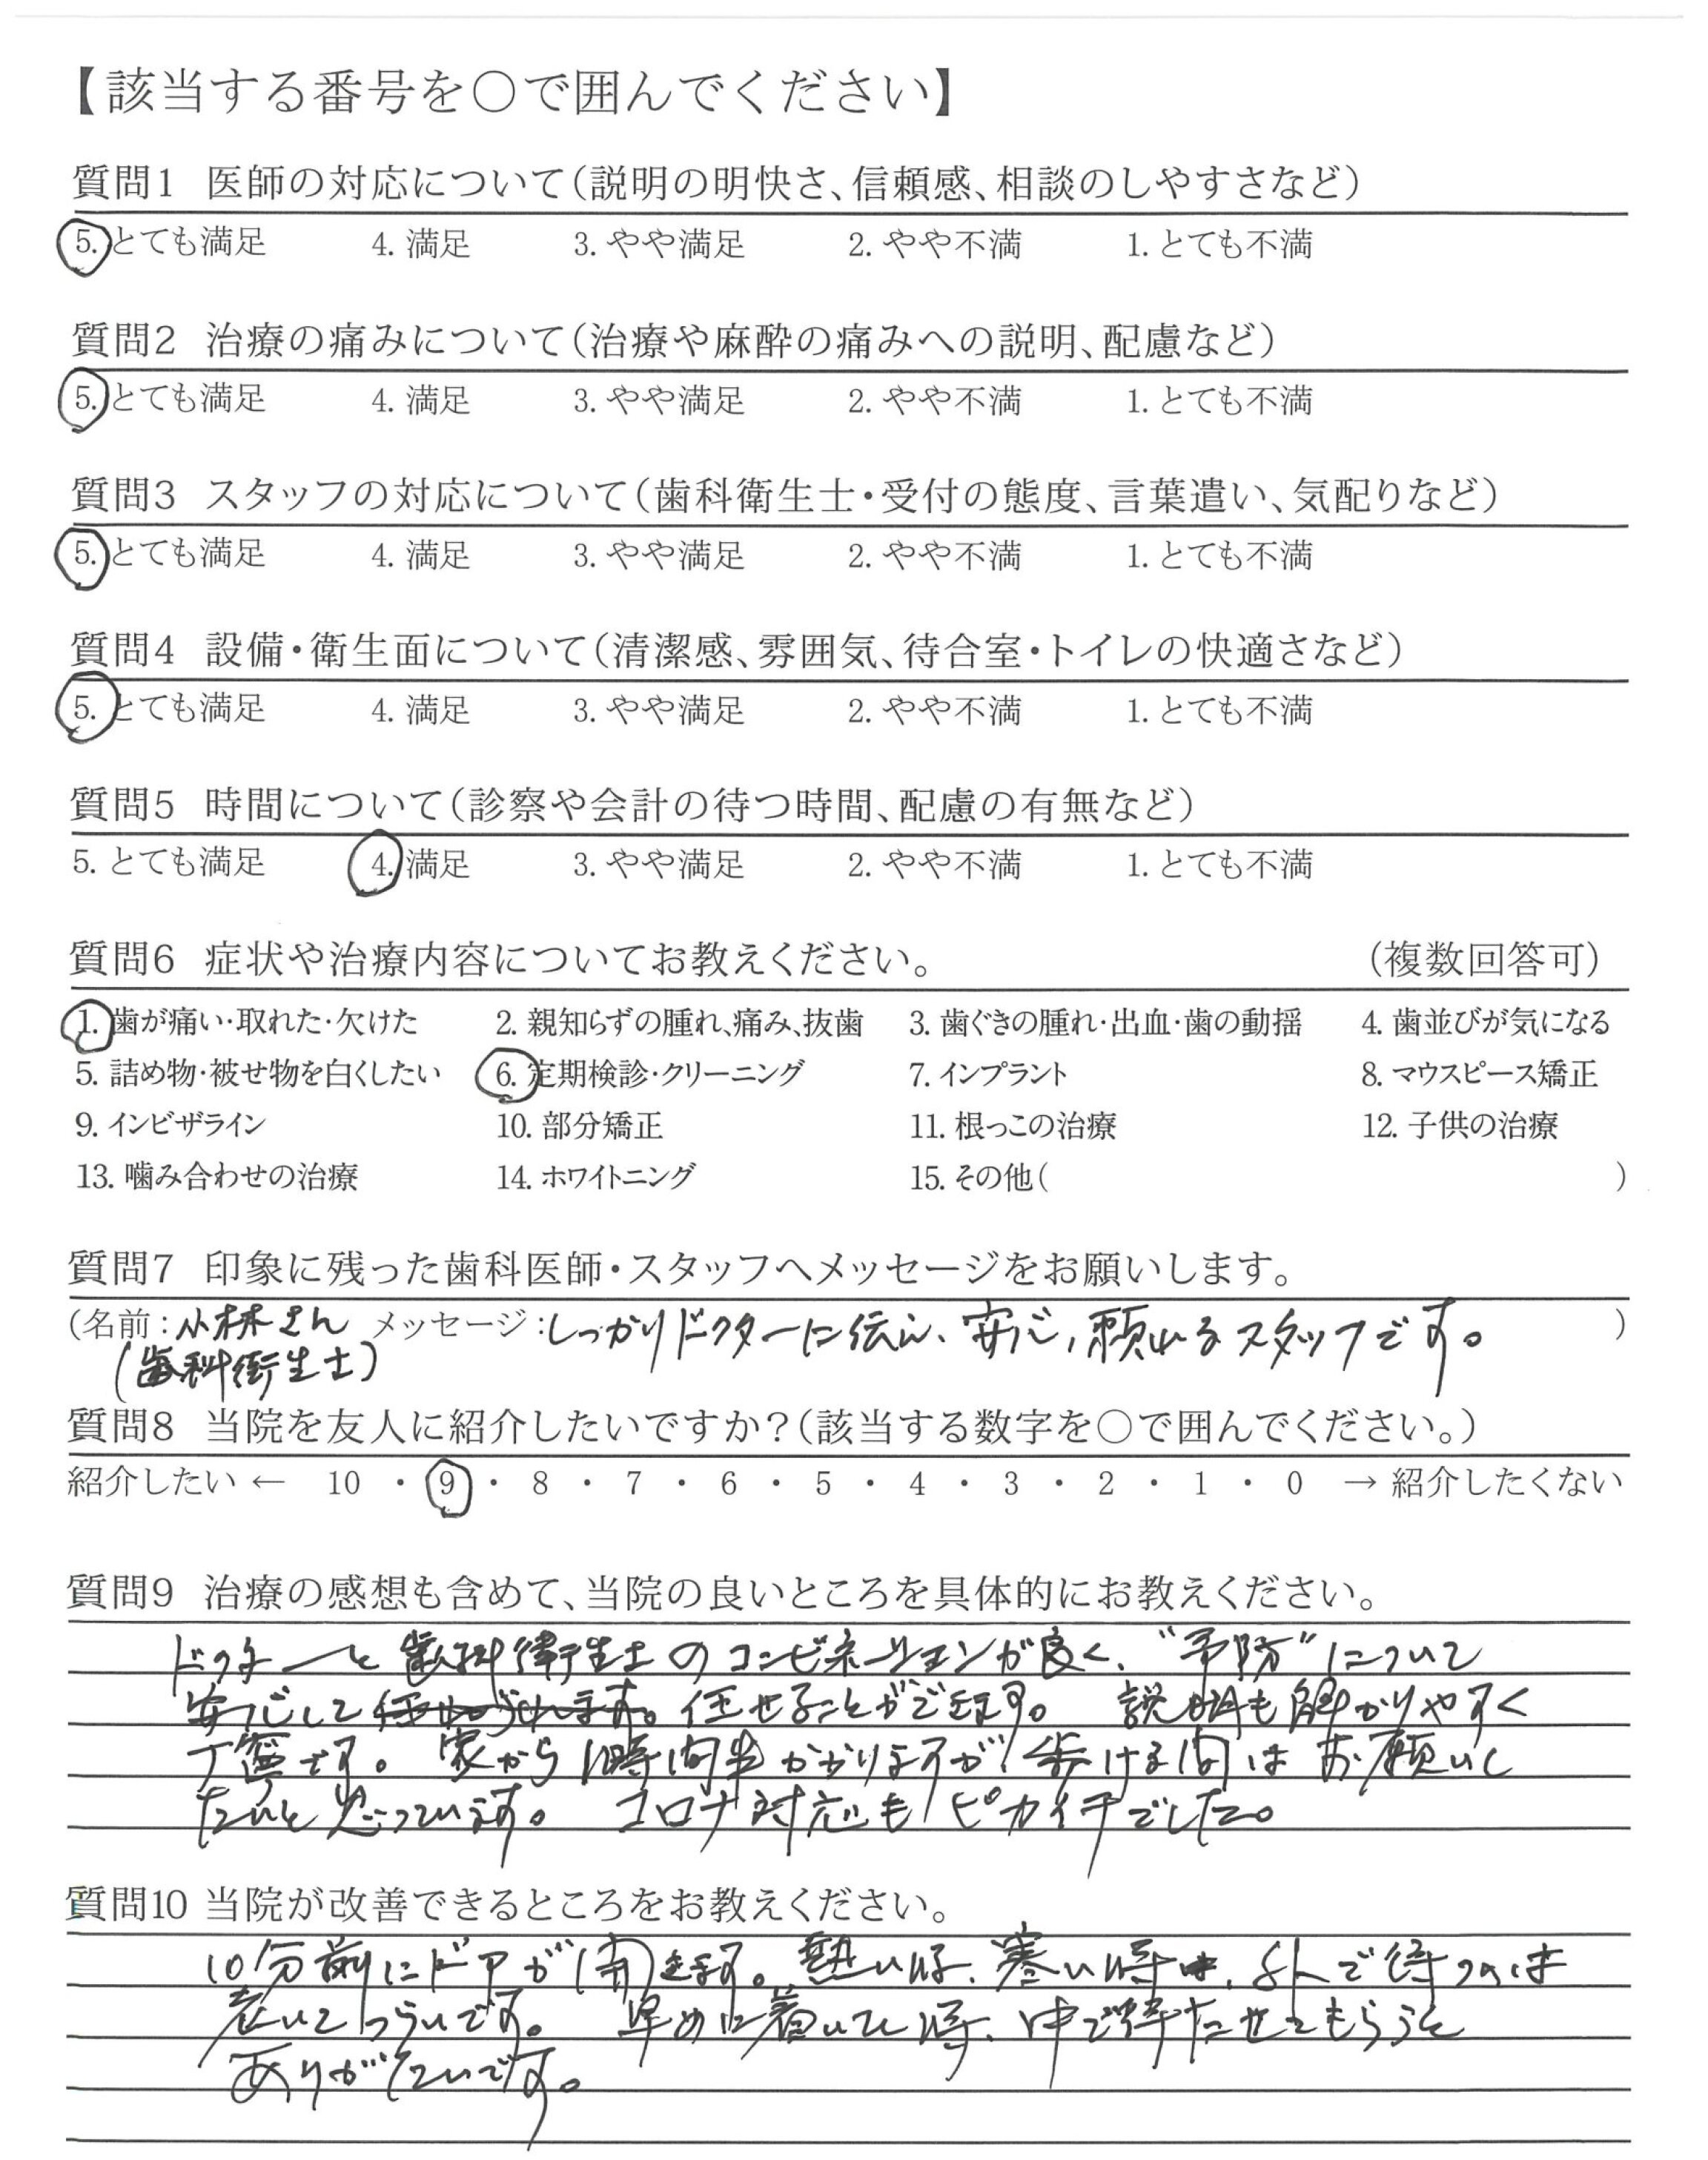 【該当する番号を〇で囲んでください】
質問1 医師の対応について(説明の明快さ、信頼感、相談のしやすさなど)
5. とても満足 4. 満足 3. やや満足 2. やや不満 1. とても不満
質問2 治療の痛みについて(治療や麻酔の痛みへの説明、配慮など)
5. とても満足 4. 満足 3. やや満足 2. やや不満 1. とても不満
質問3 スタッフの対応について(歯科衛生士・受付の態度、言葉遣い、気配りなど)
5. とても満足 4. 満足 3. やや満足 2. やや不満 1. とても不満
質問4 設備・衛生面について(清潔感、雰囲気、待合室・トイレの快適さなど)
5. とても満足 4. 満足 3. やや満足 2. やや不満 1. とても不満
質問5 時間について(診察や会計の待つ時間、配慮の有無など)
5. とても満足 4. 満足 3. やや満足 2. やや不満 1. とても不満
質問6 症状や治療内容についてお教えください。 (複数回答可)
1. 歯が痛い・取れた・欠けた 2. 親知らずの腫れ、痛み、抜歯 3. 歯ぐきの腫れ・出血・歯の動揺 4. 歯並びが気になる
5. 詰め物・被せ物を白くしたい 6. 定期検診・クリーニング 7. インプラント 8. マウスピース矯正
9. インビザライン 10. 部分矯正 11. 根っこの治療 12. 子供の治療
13. 噛み合わせの治療 14. ホワイトニング 15. その他( )
質問7 印象に残った歯科医師・スタッフへメッセージをお願いします。
(名前:小林さん メッセージ:しっかりドクターに伝え、安心、頼れるスタッフです。 )
(歯科衛生士)
質問8 当院を友人に紹介したいですか?(該当する数字を〇で囲んでください。)
紹介したい ← 10 ・ 9 ・ 8 ・ 7 ・ 6 ・ 5 ・ 4 ・ 3 ・ 2 ・ 1 ・ 0 → 紹介したくない
質問9 治療の感想も含めて、当院の良いところを具体的にお教えください。
ドクターと歯科衛生士のコンビネーションが良く、"予防"について
安心して 任せることができます。 説明も解かりやすく
丁寧です。 家から1時間半かかりますが、歩ける間はお願いし
たいと思っています。 コロナ対応もピカイチでした。
質問10 当院が改善できるところをお教えください。
10分前にドアが開きます。熱い時、寒い時は、外で待つのは
老いてつらいです。 早めに着いた時、中で待たせてもらうと
ありがたいです。